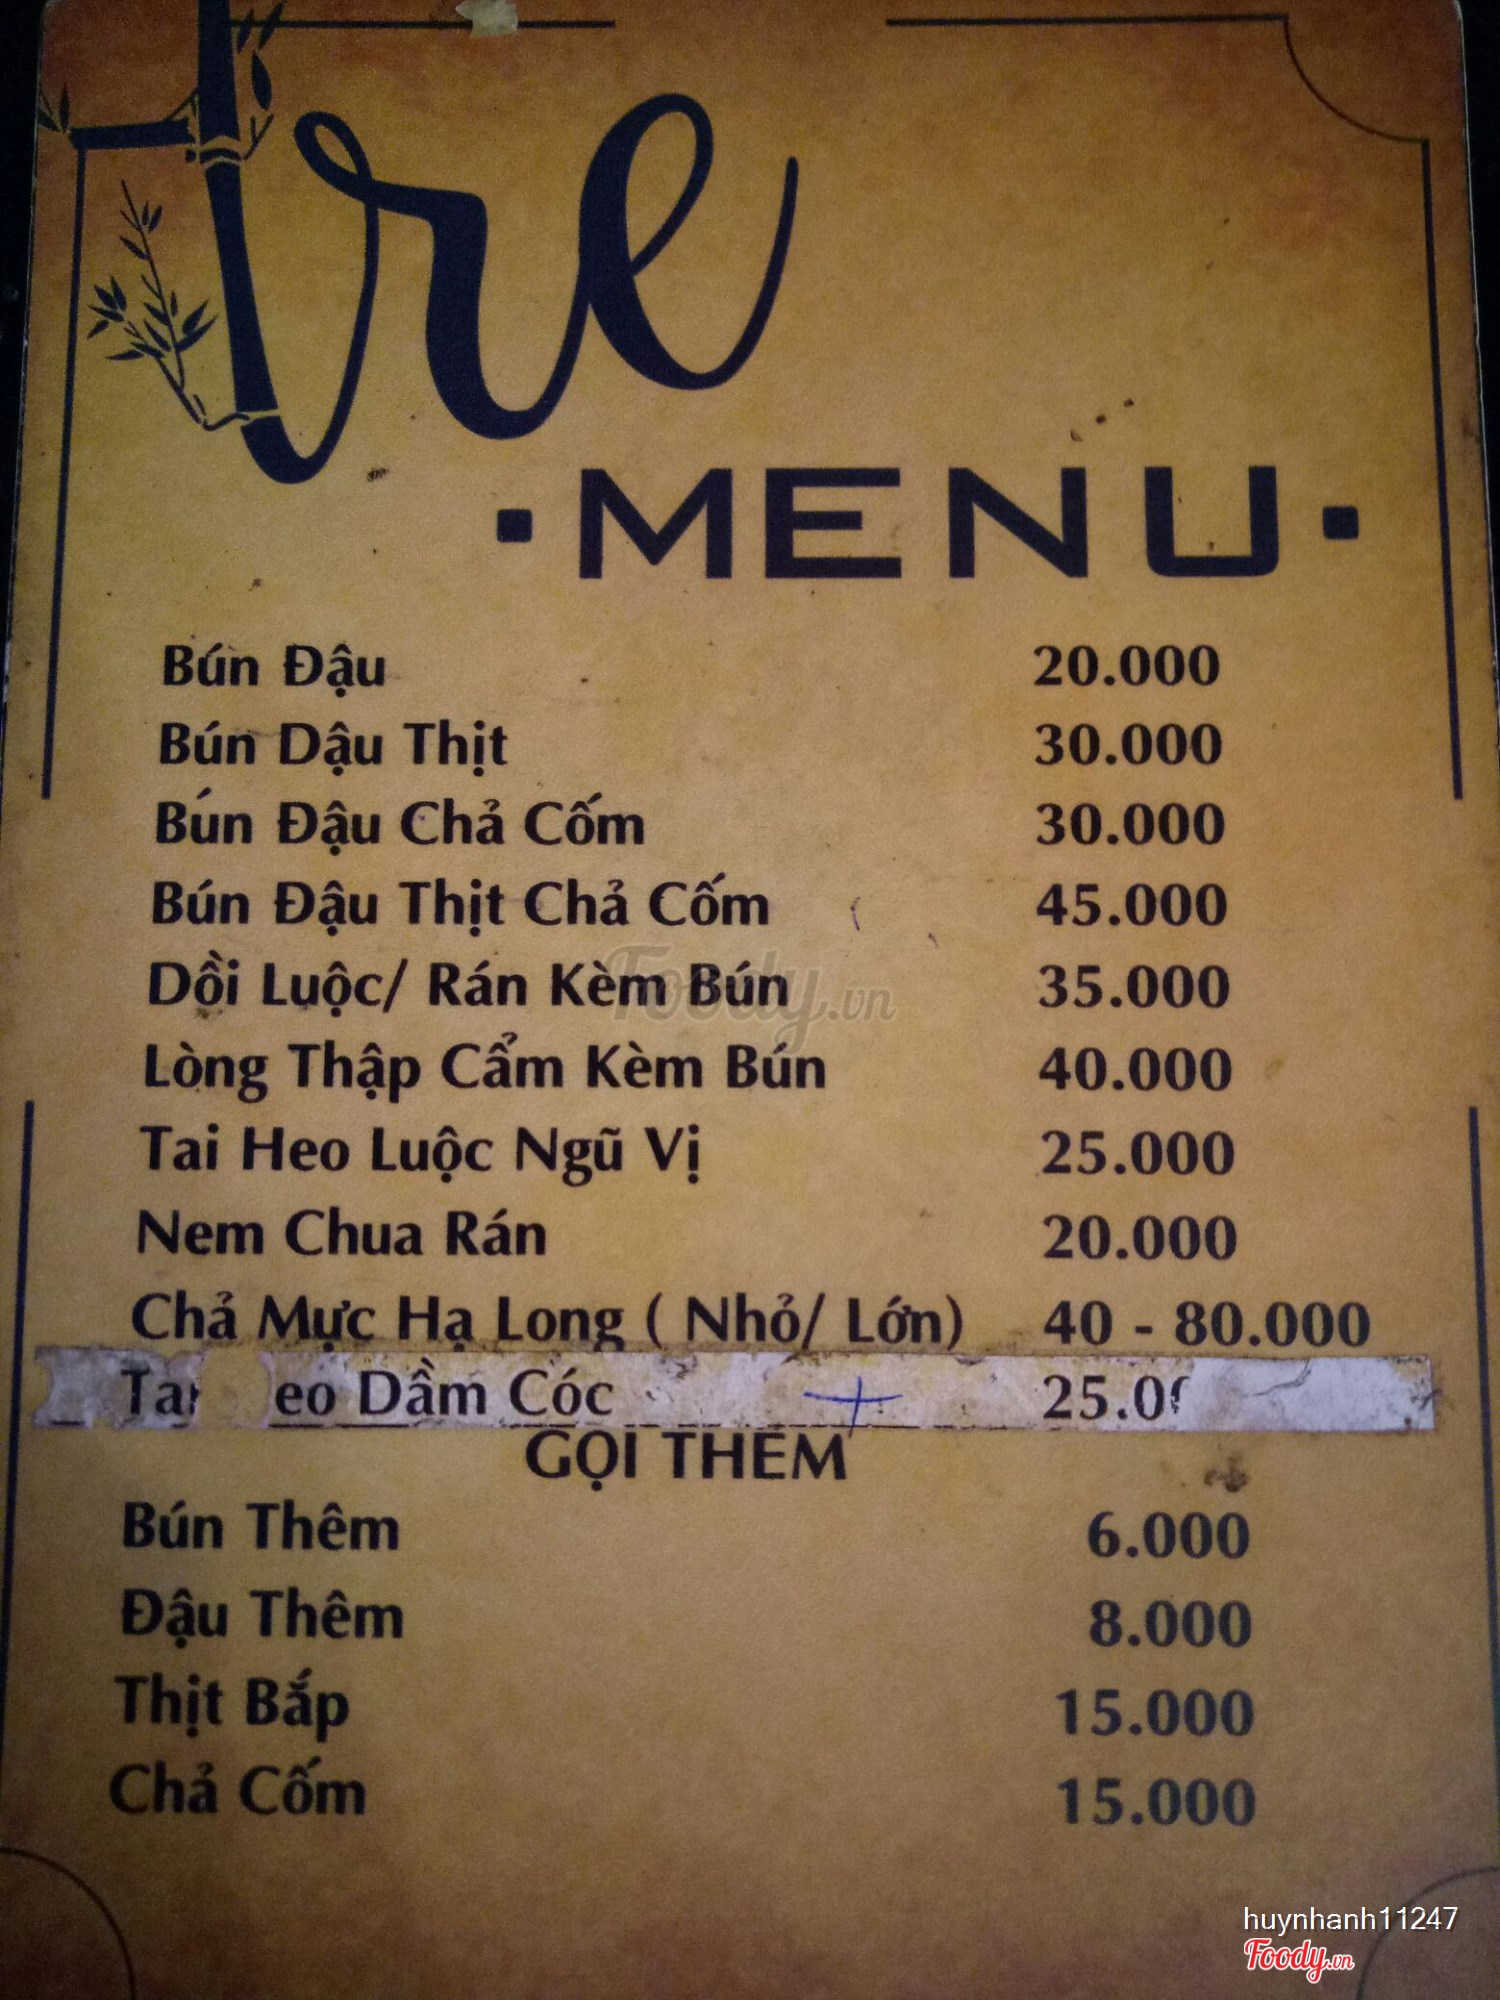 Tre
· MENU ·
Bún Đậu 20.000
Bún Dậu Thịt 30.000
Bún Đậu Chả Cốm 30.000
Bún Đậu Thịt Chả Cốm 45.000
Dồi Luộc/ Rán Kèm Bún 35.000
Foody.vn
Lòng Thập Cẩm Kèm Bún 40.000
Tai Heo Luộc Ngũ Vị 25.000
Nem Chua Rán 20.000
Chả Mực Hạ Long ( Nhỏ/ Lớn) 40 - 80.000
Dầm Cóc
GỌI THÊM
Bún Thêm 6.000
Đậu Thêm 8.000
Thịt Bắp 15.000
Chả Cốm 15.000
huynhanh11247
Foody.vn